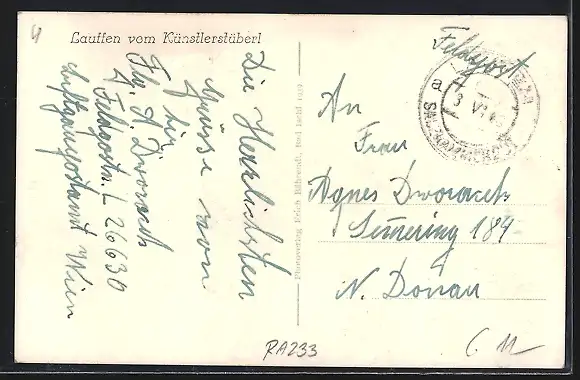 4
Lauffen vom Künstlerstüberl
Die Herzlichsten
Grüsse von
Flg. A. Dworacek
Feldpostn. L 26630
Luftgaupostamt Wien
Photoverlag Erich Bährendt, Bad Ischl
Feldpost
An
Frau
Agnes Dworacek
Semering 184
N. Donau
RA233
C 11